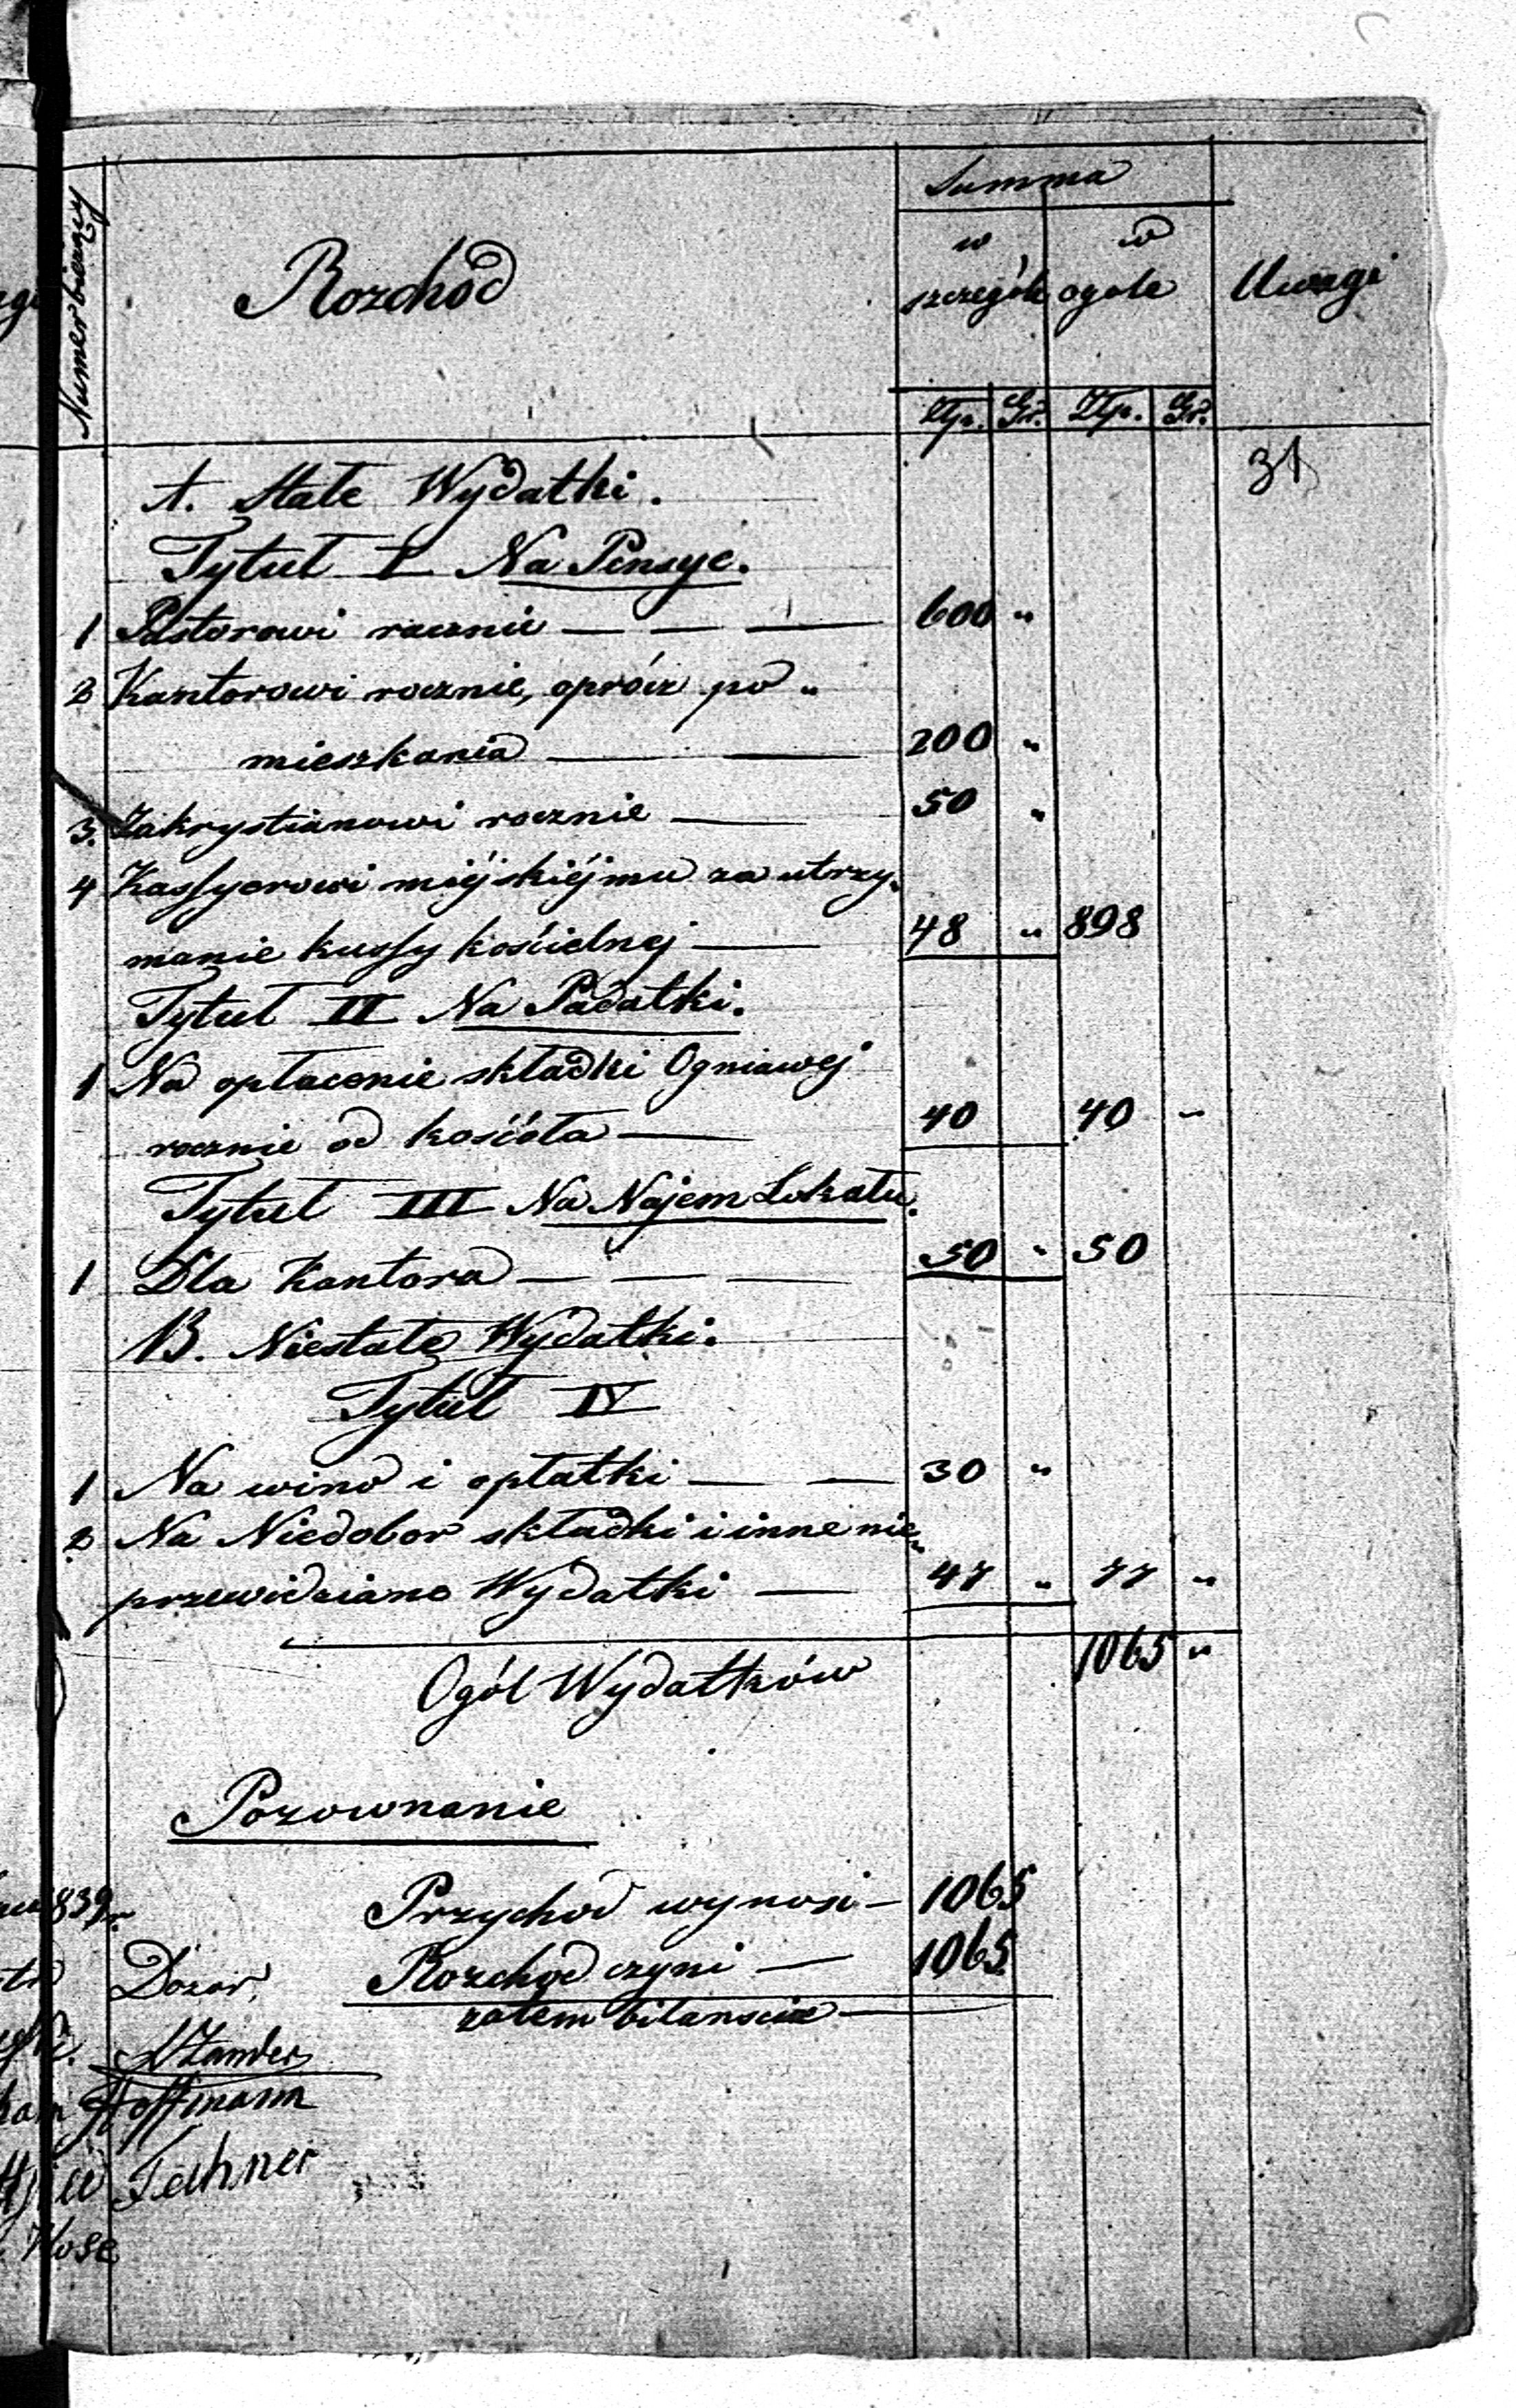 Numer bieżący
Rozchód
Summa
w szczególe
w ogole
Uwagi
Złp. Gr. Złp. Gr.
31
A. Stałe Wydatki.
Tytuł I Na Pensye.
1 Pastorowi rocznie — — — 600 "
2 Kantorowi rocznie, oprócz po„
mieszkania — — 200 "
3. Zakrystianowi rocznie — 50 "
4 Kassyerowi miéjskiéjmu za utrzy„
manie kassy kościelnej — 48 " 898
Tytuł II Na Podatki.
1 Na opłacenie składki Ogniowej
rocznie od kościoła — 40 40 "
Tytuł III Na Najem Lokalu.
1 Dla Kantora — — — 50 " 50
B. Niestałe Wydatki.
Tytuł IV
1 Na wino i opłatki — — 30 "
2 Na Niedobor składki i inne nie„
przewidziane Wydatki — 47 " 77 "
Ogół Wydatków 1065 "
Porownanie
Przychod wynosi — 1065
Rozchod czyni — 1065
zatem bilansuie —
839 r.
Dozor,
Zander
Hoffmann
Fechner
Klose